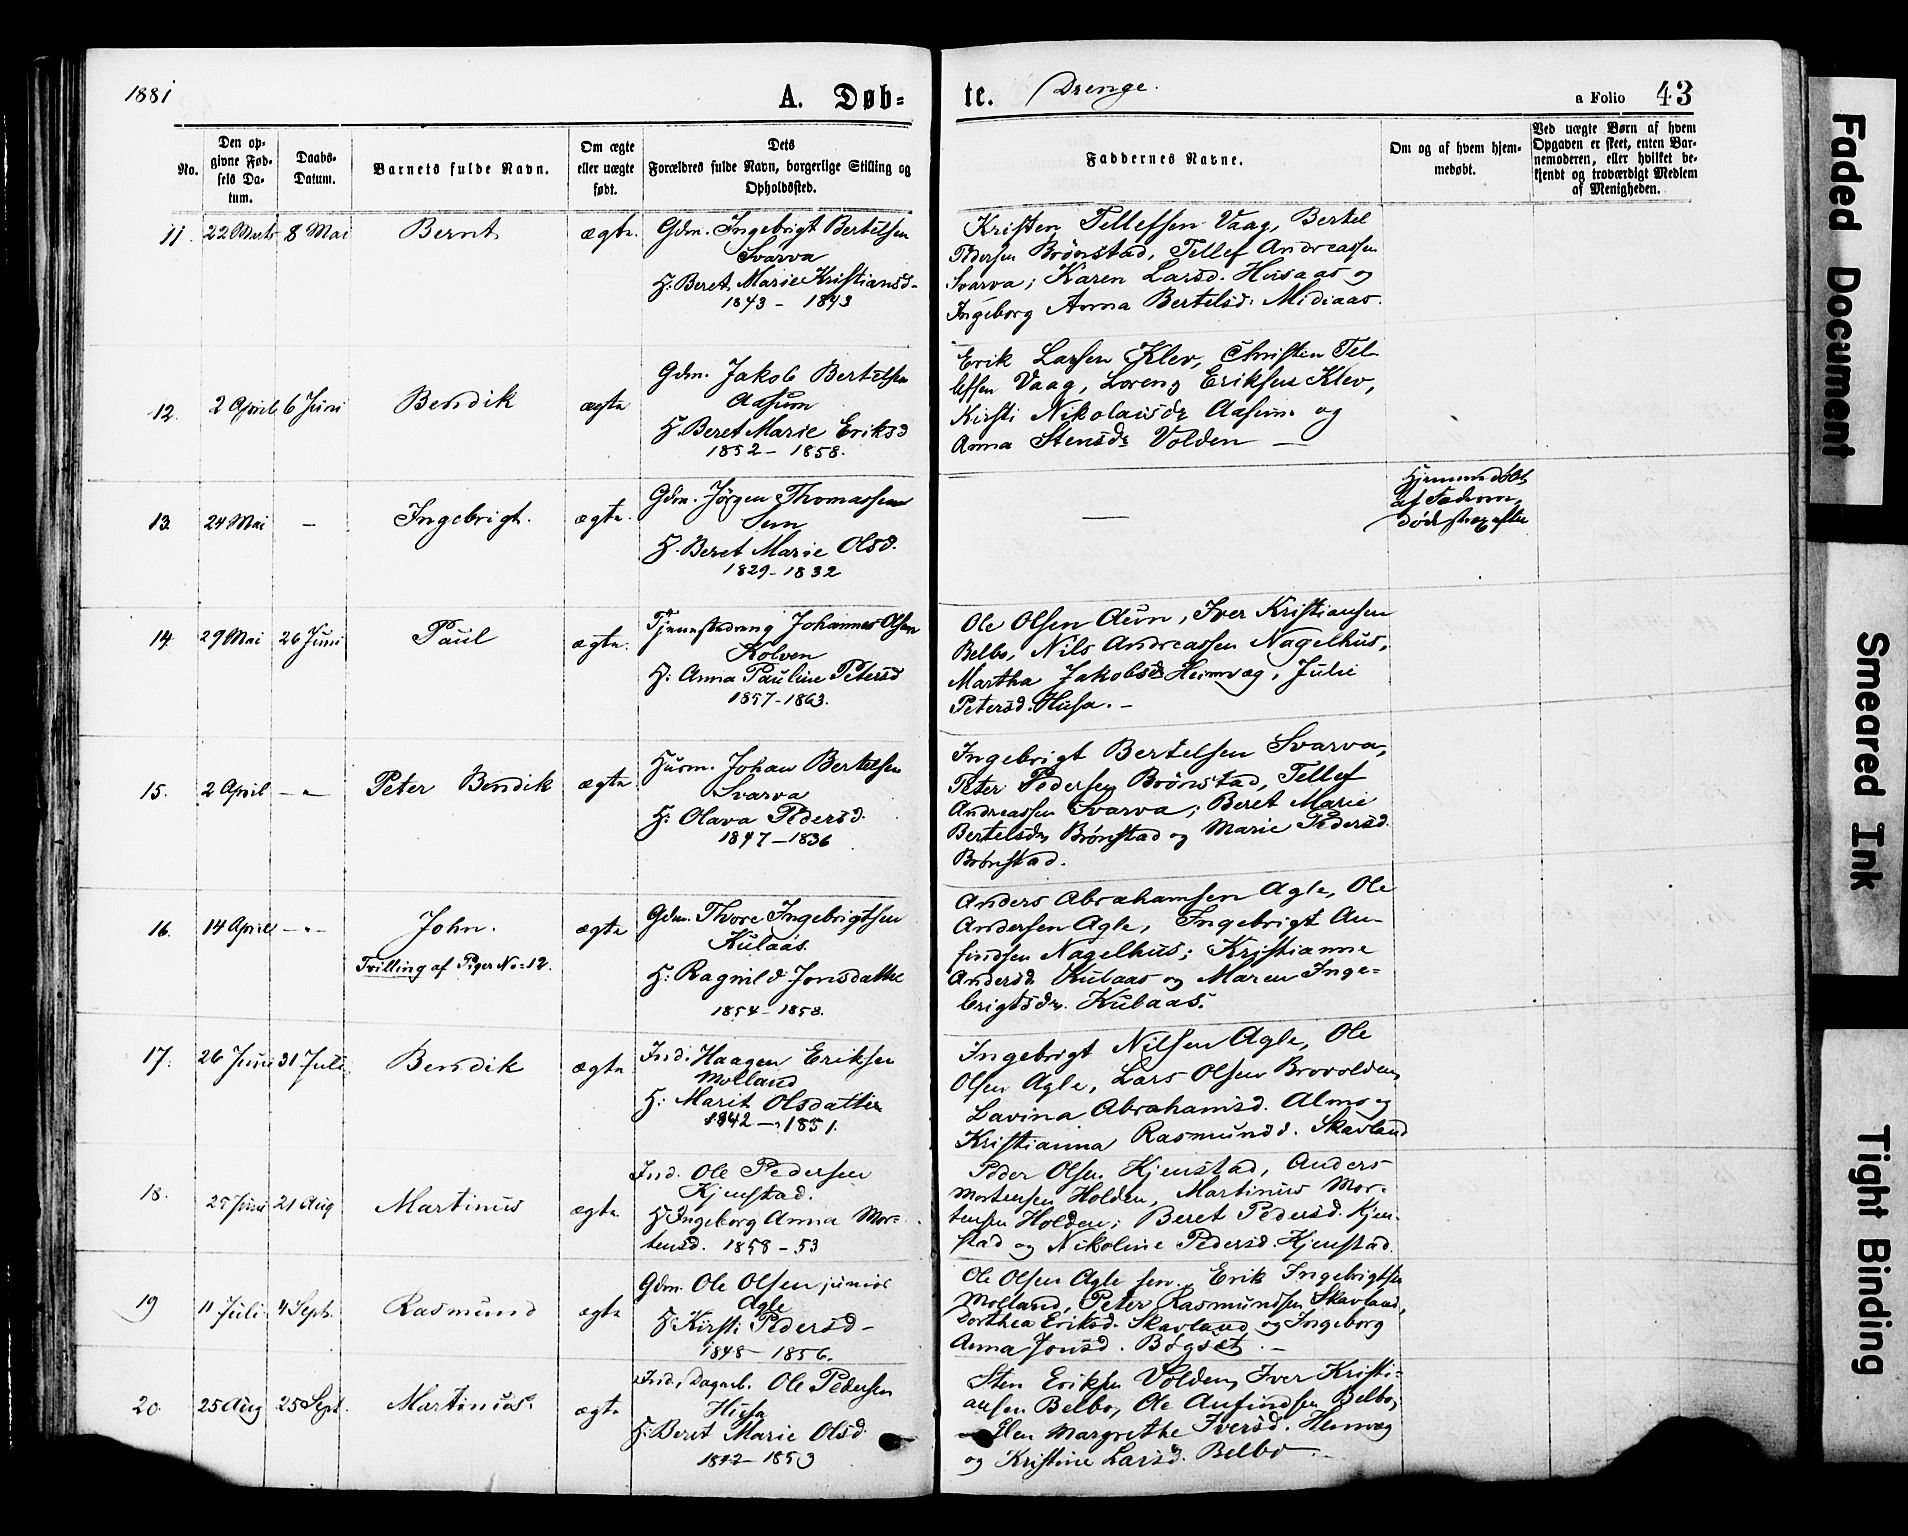 1881
A. Døb=
te. Drenge.
a Folio 43
No.
Den op-
givne Fød-
sels Da-
tum.
Daabs-
Datum.
Barnets fulde Navn.
Om ægte
eller uægte
født.
Dets
Forældres fulde Navn, borgerlige Stilling og
Opholdssted.
Faddernes Navne.
Om og af hvem hjem-
medøbt.
Ved uægte Børn af hvem
Opgaven er skeet, enten Bar-
nemoderen, eller hvilket be-
kjendt og troværdigt Medlem
af Menigheden.
11. 22 Marts 8 Mai Bernt ægte
Gdm. Ingebrigt Bertelsen
Svarva
H: Beret Marie Kristiansd.
1843 - 1843
Kristen Tellefsen Vaag, Bertel
Pedersen Brönstad, Tellef Andreassen
Svarva; Karen Larsd. Husaas og
Ingeborg Anna Bertelsd: Midiaas.
12. 2 April 6 Juni Bendik ægte
Gdm. Jakob Bertelsen
Aasum
H. Beret Marie Eriksd
1852 - 1858.
Erik Larsen Klev, Christen Tel-
lefsen Vaag, Lorens Eriksen Klev,
Kirsti Nikolaisdr Aasum og
Anna Stensdr Volden —
13. 24 Mai - Ingebrigt. ægte.
Gdm. Jörgen Thomassen
Sem
H. Beret Marie Olsd.
1829 - 1832
—
Hjemmedöbt
af Faderen,
död strax efter
14. 29 Mai 26 Juni Paul ægte.
Tjenestedreng Johannes Olsen
Kolven
H: Anna Pauline Petersd
1857 - 1863.
Ole Olsen Aun, Iver Kristiansen
Belbo, Nils Andreassen Nagelhus,
Martha Jakobsdr Heimvæg, Julie
Petersd. Husa. -
15. 2 April - " - Peter Bendik ægte
Husm. Johan Bertelsen
Svarva
H: Olava Pedersd.
1847 - 1836
Ingebrigt Bertelsen Svarva,
Peter Pedersen Brönstad, Tellef
Andreassen Svarva; Beret Marie
Bertelsdr Brönstad og Marie Pedersd.
Brönstad.
16. 14 April - " - John. ægte
Tvilling af Piger No 12.
Gdm. Thore Ingebrigtsen
Kulaas.
H: Ragnild Jonsdatter
1854 - 1858.
Anders Abrahamsen Agle, Ole
Andersen Agle, Ingebrigt An-
findsen Nagelhus; Kristianne
Andersdr Kulaas og Maren Inge=
brigtsdr. Kulaas.
17. 26 Juni 31 Juli Bendik ægte
Ind. Haagen Eriksen
Molland
H: Marit Olsdatter
1842 - 1851.
Ingebrigt Nilsen Agle, Ole
Olsen Agle, Lars Olsen Brovolden,
Lavina Abrahamsd. Almo og
Kristianna Rasmundd. Skavland
18. 27 Juni 21 Aug Martinus ægte
Ind. Ole Pedersen
Kjenstad.
H Ingeborg Anna Mor=
tensd. 1858 - 53
Peder Olsen Kjenstad, Anders
Mortensen Holden, Martinus Mor-
tensen Holden; Beret Pedersd. Kjen-
stad og Nikoline Pedersd. Kjenstad.
19 11 Juli 4 Sept. Rasmund ægte
Gdm. Ole Olsen junior
Agle
H: Kirsti Pedersd -
1848 - 1856.
Ole Olsen Agle sen., Erik Ingebrigtsen
Molland, Peter Rasmundsen Skavland,
Dorthea Eriksd. Skavland og Ingeborg
Anna Jonsd. Bøgsæt. -
20. 25 Aug 25 Sept. Martinus ægte
Ind. Dagarb. Ole Pedersen
Husa
H: Beret Marie Olsd.
1842 - 1853
Sten Eriksen Volden, Iver Kristi=
ansen Belbo, Ole Anfindsen Belbo,
Elen Margrethe Iversd. Hemvæg
og Kristine Larsd. Belbo -
Faded Document
Smeared Ink
Tight Binding